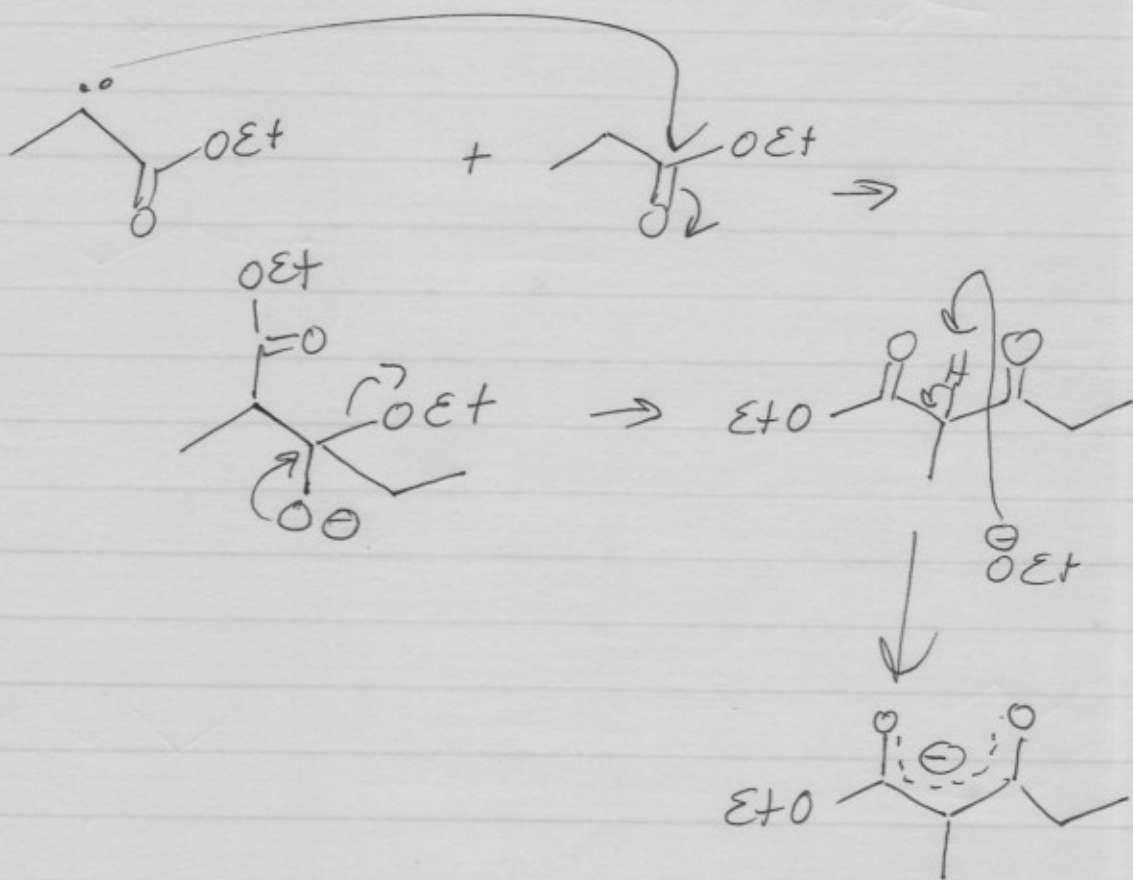 OEt + OEt →
O O
OEt
O O O
OEt → EtO H
O ⊖ ⊖
OEt
O ⊖ O
EtO